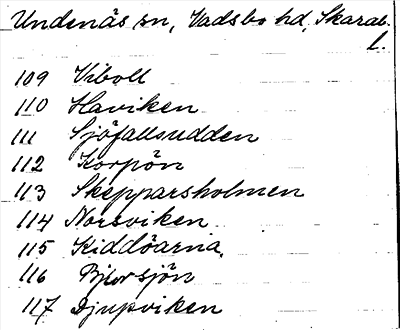 Undenäs sn, Vadsbo hd, Skarab.
l.
109 Viboll
110 Haviken
111 Sjöfallsudden
112 Korpön
113 Skepparsholmen
114 Norsviken
115 Kiddöarna,
116 Björsjön
117 Djupviken